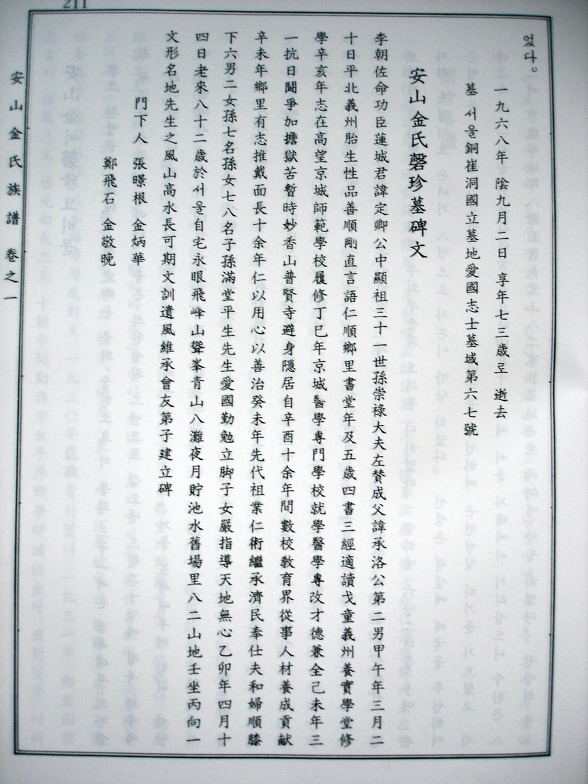 211
었다。
一九六八年 陰九月二日 享年七三歲로 逝去
墓 서울銅雀洞國立墓地愛國志士墓域第六七號
安山金氏磬珍墓碑文
李朝佐命功臣蓮城君諱定卿公中顯祖三十一世孫崇祿大夫左贊成父諱承洛公第二男甲午年三月二
十日平北義州胎生性品善順剛直言語仁順鄉里書堂年及五歲四書三經適讀戈童義州養實學堂修
學辛亥年志在高望京城師範學校履修丁巳年京城醫學專門學校就學醫學專攻才德兼全己未年三
一抗日鬪爭加擔獄苦暫時妙香山普賢寺避身隱居自辛酉十余年間數校敎育界從事人材養成貢獻
辛未年鄉里有志推戴面長十余年仁以用心以善治癸未年先代祖業仁術繼承濟民奉仕夫和婦順膝
下六男二女孫七名孫女七八名子孫滿堂平生先生愛國勤勉立脚子女嚴指導天地無心乙卯年四月十
四日老來八十二歲於서울自宅永眼飛峰山聳峯青山八灘夜月貯池水舊場里八二山地壬坐丙向一
文形名地先生之風山高水長可期文訓遺風維承會友第子建立碑
門下人 張暻根 金炳華
鄭飛石 金敬晚
安山金氏族譜 卷之一